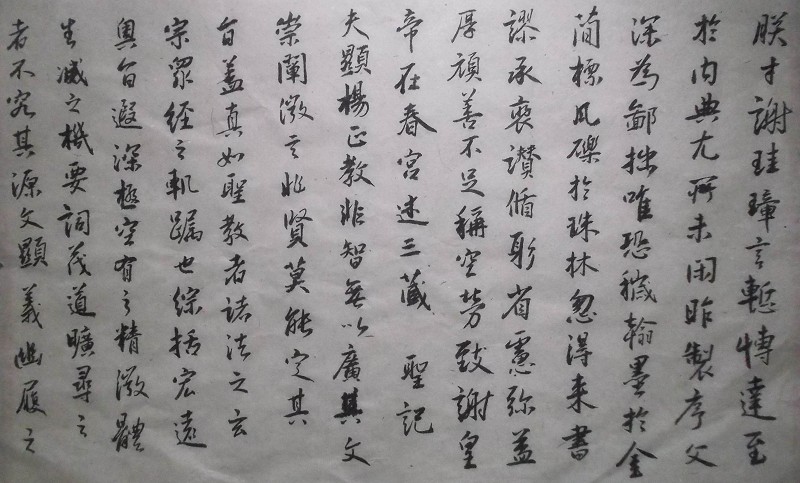 朕才謝珪璋言慙博達至
於内典尤所未閑昨製序文
深為鄙拙唯恐穢翰墨於金
簡標瓦礫於珠林忽得来書
謬承褒讃循躬省慮弥益
厚顔善不足稱空勞致謝皇
帝在春宮述三藏 聖記
夫顯楊正教非智無以廣其文
崇闡微言非賢莫能定其
旨盖真如聖教者諸法之玄
宗眾經之軌躅也綜括宏遠
奧旨遐深極空有之精微體
生滅之機要詞茂道曠尋之
者不究其源文顯義幽履之